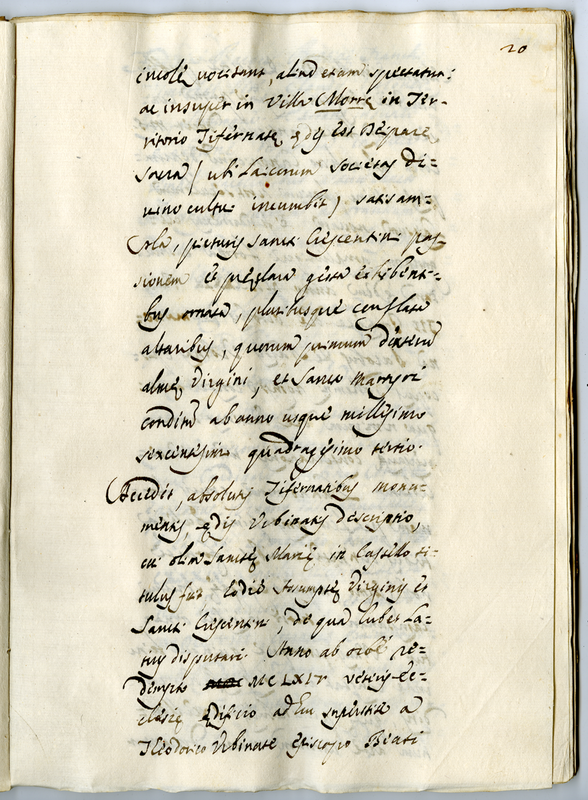 20
incolę vocitant, aliud etiam spectatur:
ac insuper in Villa Morrę in Ter-
ritorio Tifernatę ędes est Deiparę
sacra / ubi Laicorum societas di-
uino cultui incumbit) satis am-
pla, picturis Sancti Crescentini pas-
sionem et pręclara gesta exhibenti-
bus ornata, pluribusque conflata
altaribus, quorum primum dexterum
almę Virgini, et Sancto Martyri
conditum ab anno usque millesimo
sexcentesimo quadragesimo tertio.
Accedit, absolutis Tifernatibus monu-
mentis, ędis Urbinatis descriptio,
cui olim Sanctę Marię in Castello ti-
tulus fuit hodie Assumptę Virginis et
Sancti Crescentini, de qua lubet la-
tius disputari. Anno ab orbe re-
dempto MCLXIV veteris Ec-
clesię ędificio adhuc superstite a
Theodorico Urbinate Episcopo Beati